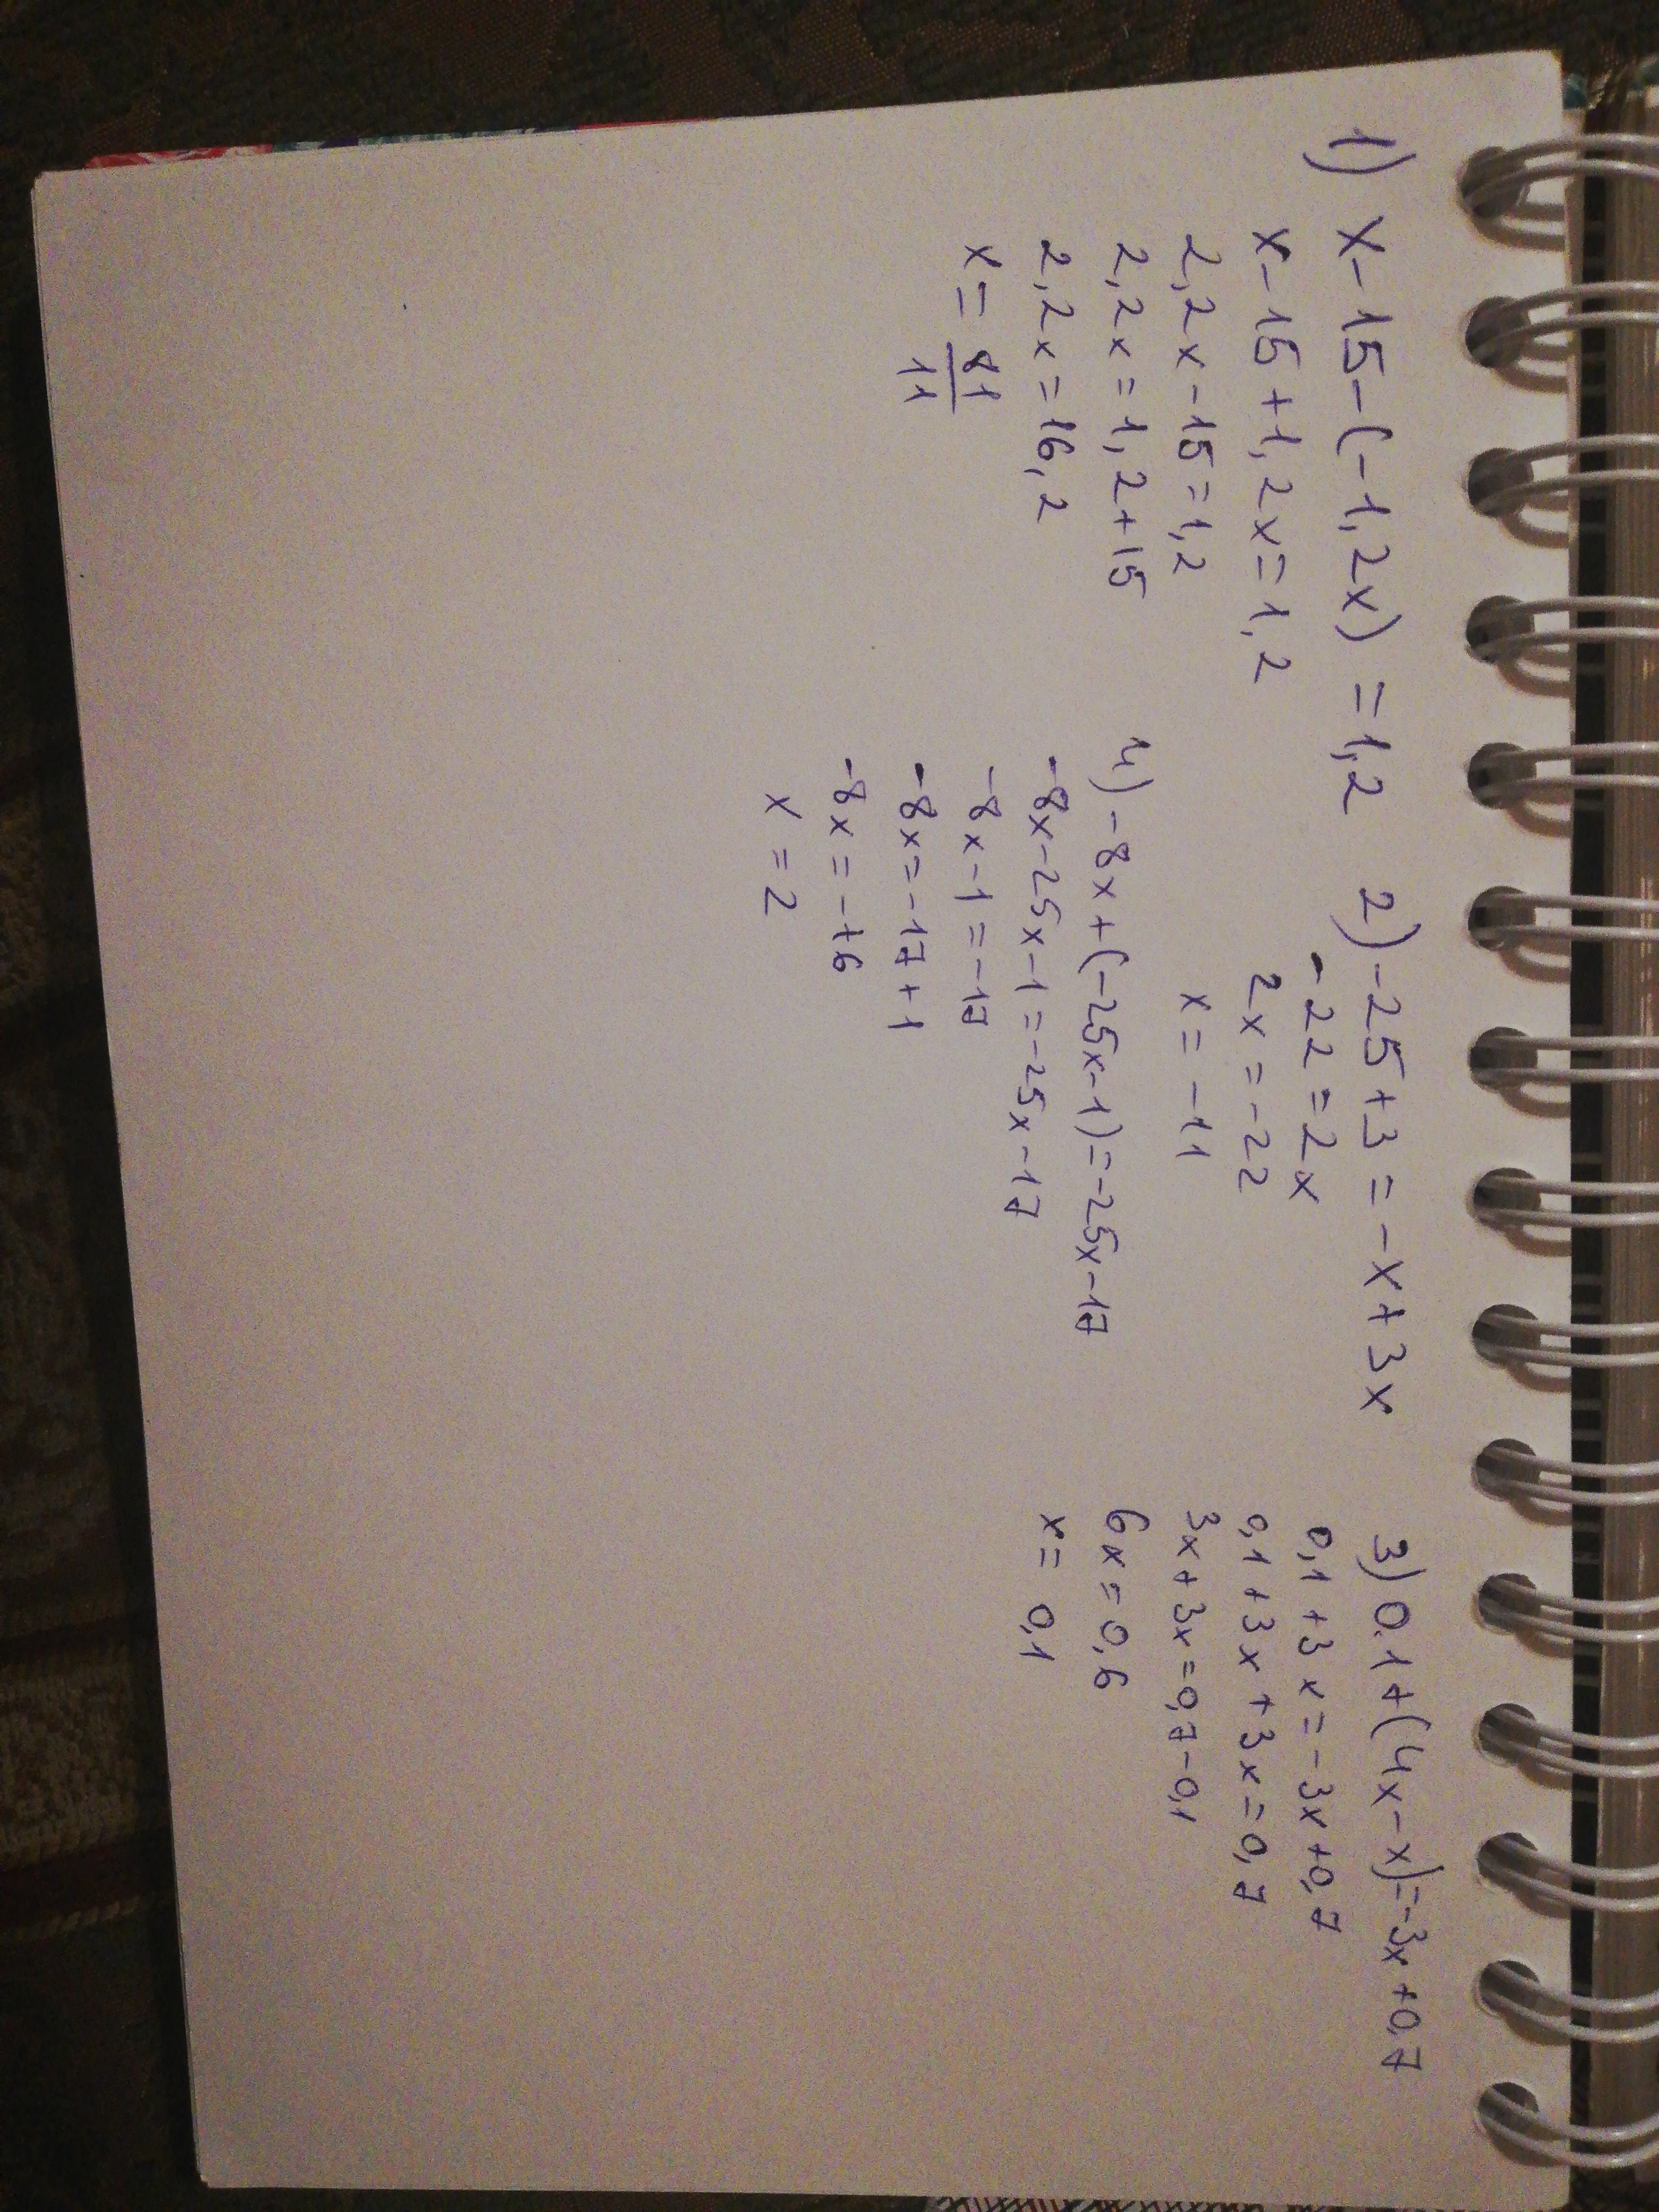 1) x-15-(-1,2x)=1,2
x-15+1,2x=1,2
2,2x-15=1,2
2,2x=1,2+15
2,2x=16,2
x=81/11
2)-25+3=-x+3x
-22=2x
2x=-22
x=-11
3)0.1+(4x-x)=-3x+0,7
0,1+3x=-3x+0,7
0,1+3x+3x=0,7
3x+3x=0,7-0,1
6x=0,6
x=0,1
4)-8x+(-25x-1)=-25x-17
-8x-25x-1=-25x-17
-8x-1=-17
-8x=-17+1
-8x=-16
x=2